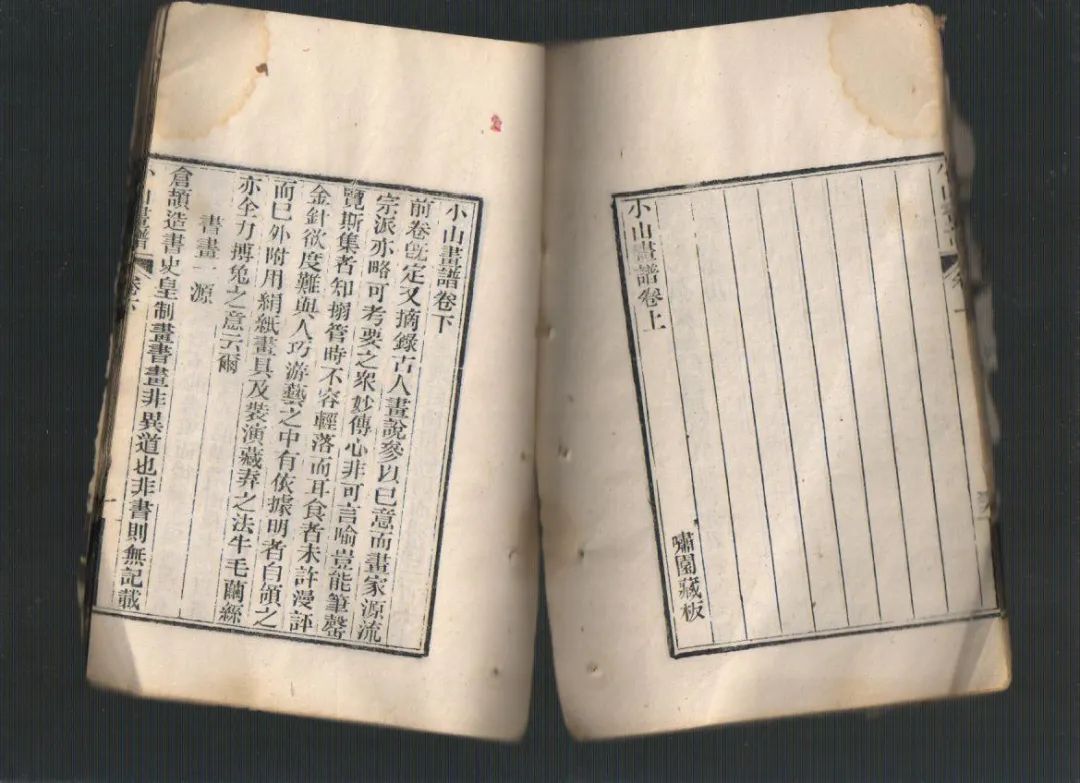 小山畫譜卷上
嘯園藏板
小山畫譜卷下
前卷旣定又摘錄古人畫說參以已意而畫家源流
宗派亦略可考要之衆妙傳心非可言喻豈能筆罄
覽斯集者知搦管時不容輕落而耳食者未許漫評
金針欲度難與人巧游藝之中有依據明者自領之
而已外附用絹紙畫具及裝演藏弆之法牛毛繭絲
亦全力搏兔之意云爾
書畫一源
倉頡造書史皇制畫書畫非異道也非書則無記載
小山畫譜 卷下